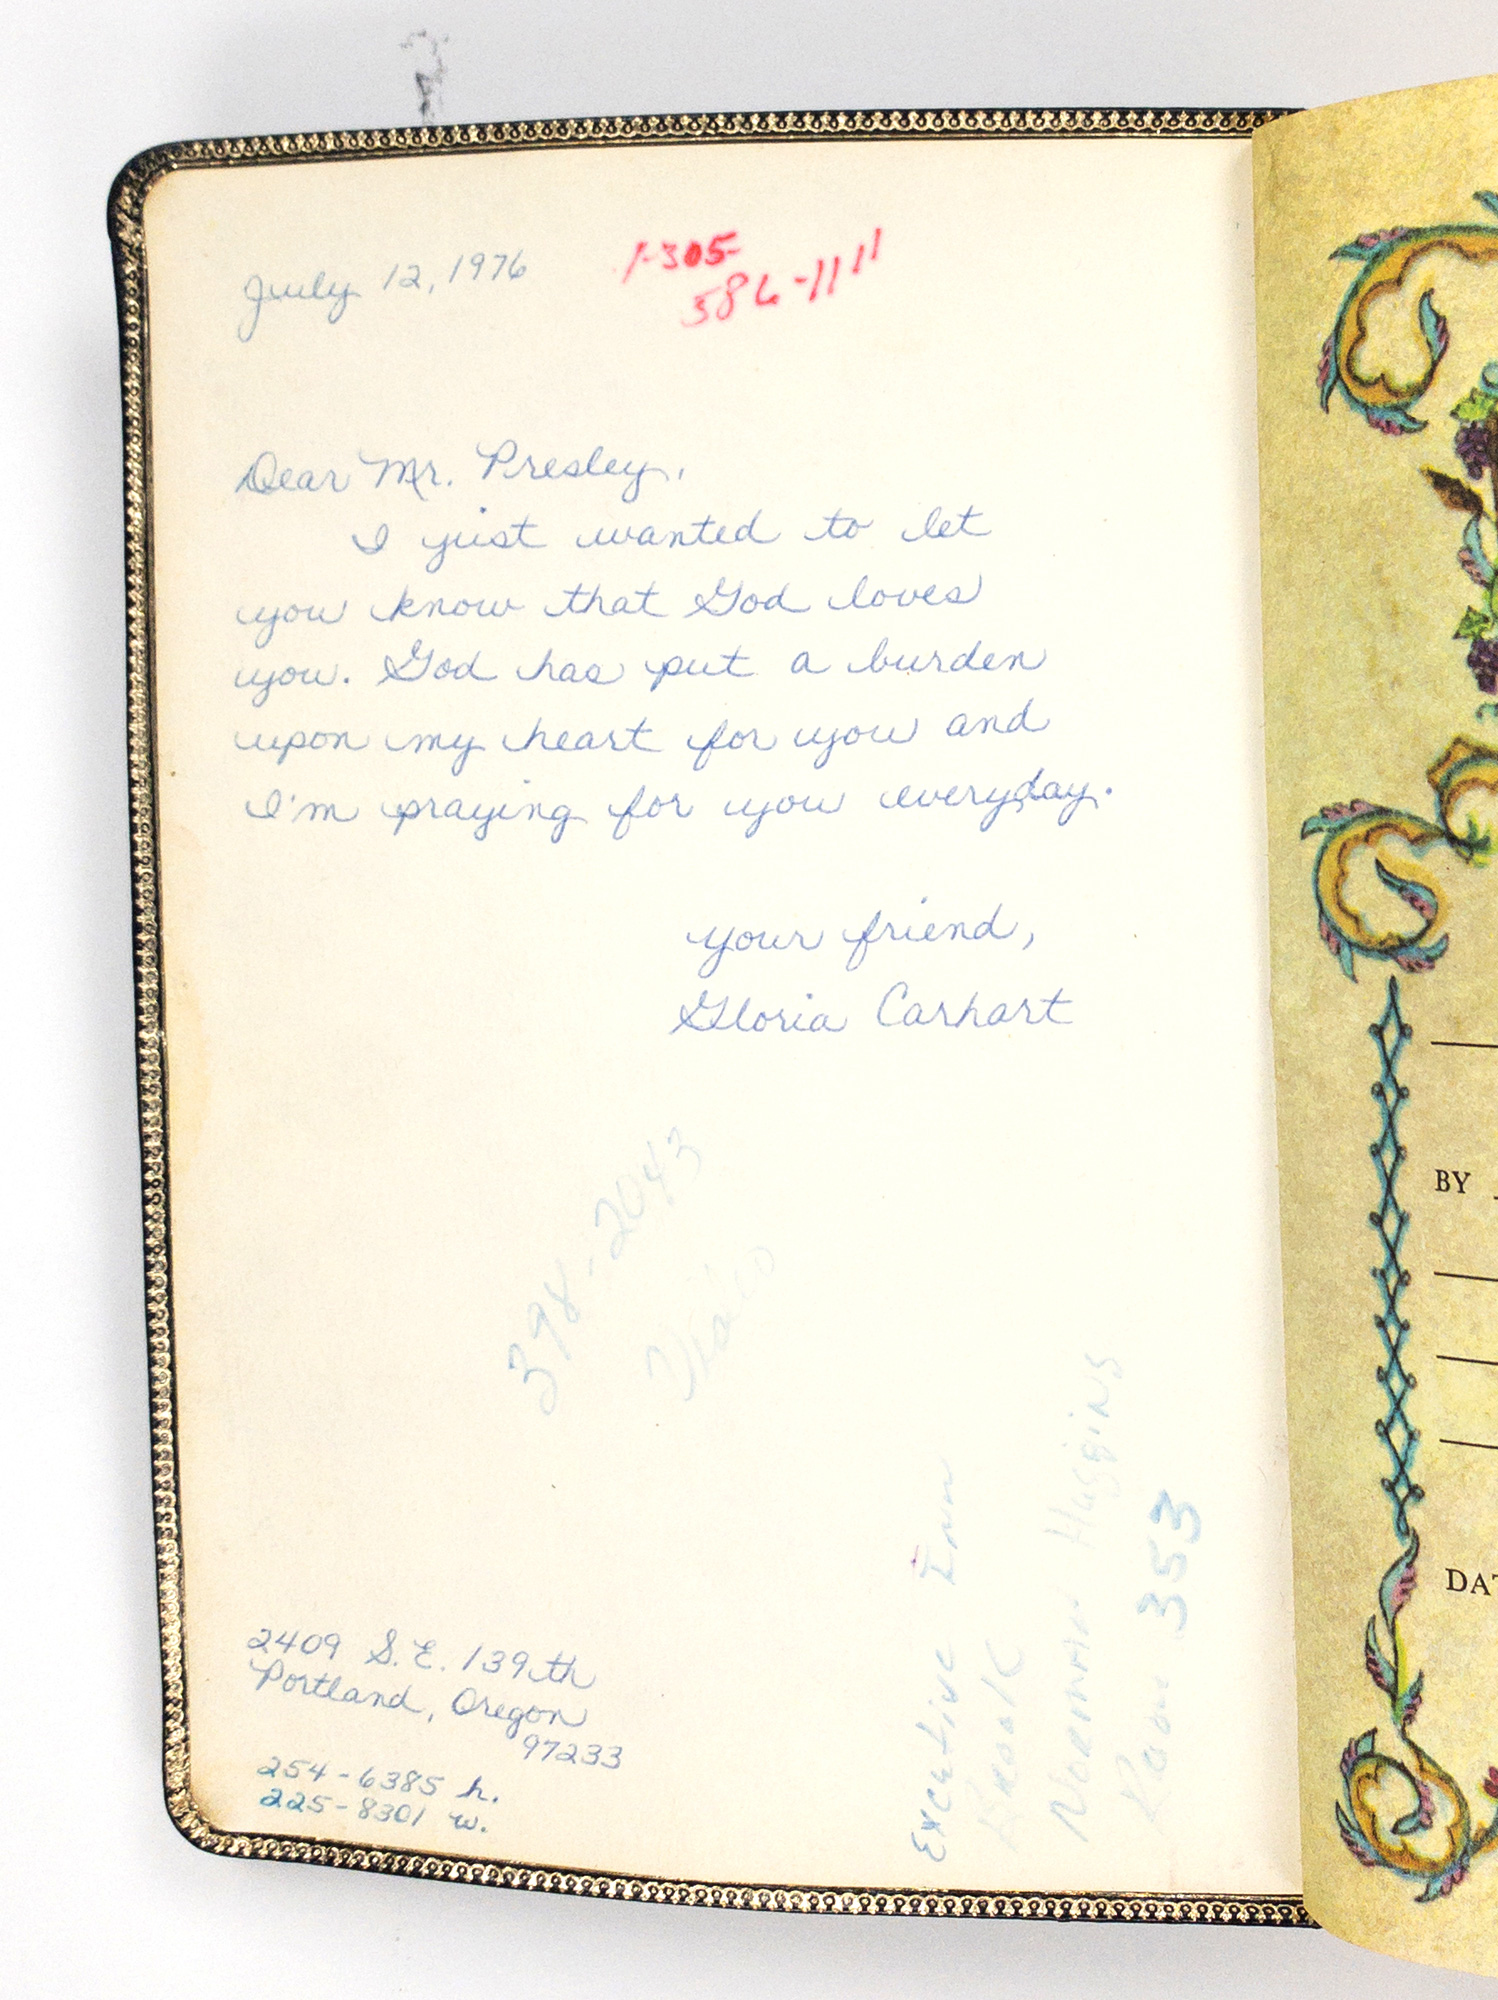 July 12, 1976
1-305-
586-1111
Dear Mr. Presley,
I just wanted to let
you know that God loves
you. God has put a burden
upon my heart for you and
I'm praying for you everyday.
your friend,
Gloria Carhart
398-2043
2409 S.E. 139th
Portland, Oregon
97233
254-6385 h.
225-8301 w.
Executive Inn
Norman Huggins
Room 353
BY